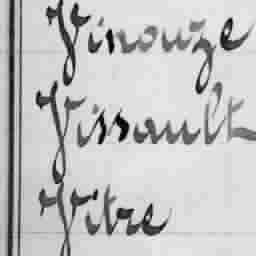 Vinouze
Vissault
Vitre